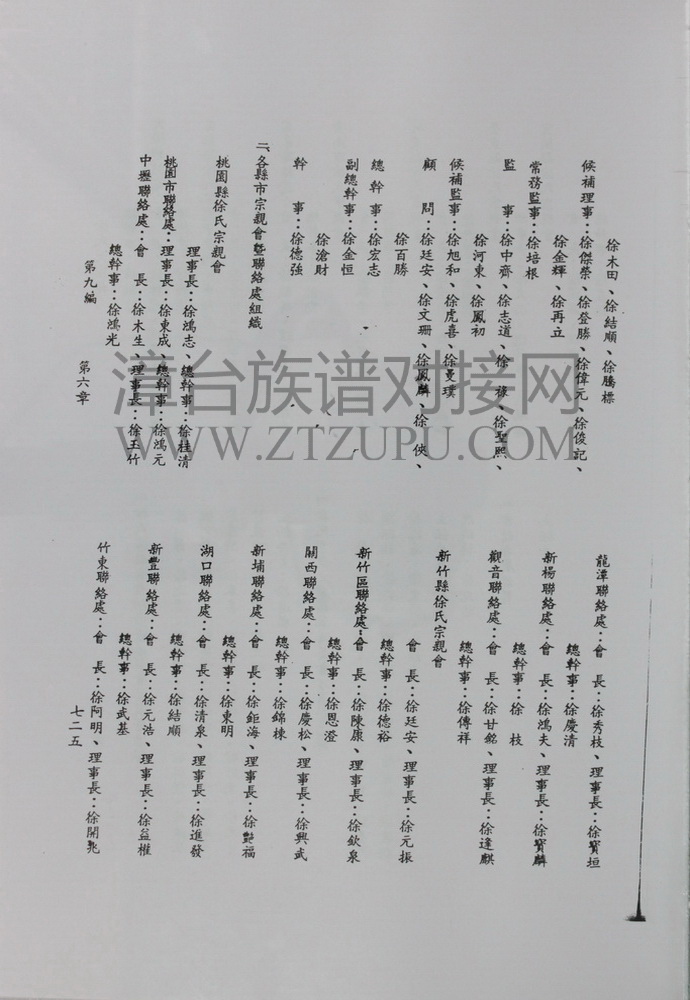 徐木田、徐結順、徐騰標
候補理事：徐傑榮、徐登勝、徐偉元、徐俊記、
徐金輝、徐再立
常務監事：徐培根
監　事：徐中齋、徐志道、徐　祿、徐聖熙、
徐河東、徐鳳初
候補監事：徐旭和、徐虎喜、徐曼璞
顧　問：徐廷安、徐文珊、徐鳳麟、徐　俠、
徐百勝
總幹事：徐宏志
副總幹事：徐金恒
徐滄財
幹　事：徐德強
二、各縣市宗親會暨聯絡處組織
桃園縣徐氏宗親會
理事長：徐鴻志、總幹事：徐桂清
桃園市聯絡處：理事長：徐東成、總幹事：徐鴻元
中壢聯絡處：會　長：徐木生、理事長：徐玉竹
總幹事：徐鴻光
龍潭聯絡處：會　長：徐秀枝、理事長：徐寶垣
總幹事：徐慶清
新楊聯絡處：會　長：徐鴻夫、理事長：徐寶麟
總幹事：徐　枝
觀音聯絡處：會　長：徐甘銘、理事長：徐逢麒
總幹事：徐傳祥
新竹縣徐氏宗親會
會　長：徐廷安、理事長：徐元振
總幹事：徐德裕
新竹區聯絡處：會　長：徐陳康、理事長：徐欽泉
總幹事：徐恩澄
關西聯絡處：會　長：徐慶松、理事長：徐興武
總幹事：徐錦棟
新埔聯絡處：會　長：徐鉅海、理事長：徐　福
總幹事：徐東明
湖口聯絡處：會　長：徐清泉、理事長：徐進發
總幹事：徐結順
新豐聯絡處：會　長：徐元浩、理事長：徐益權
總幹事：徐武基
竹東聯絡處：會　長：徐阿明、理事長：徐開
第九編　第六章
七二五
漳台族谱对接网
WWW.ZTZUPU.COM